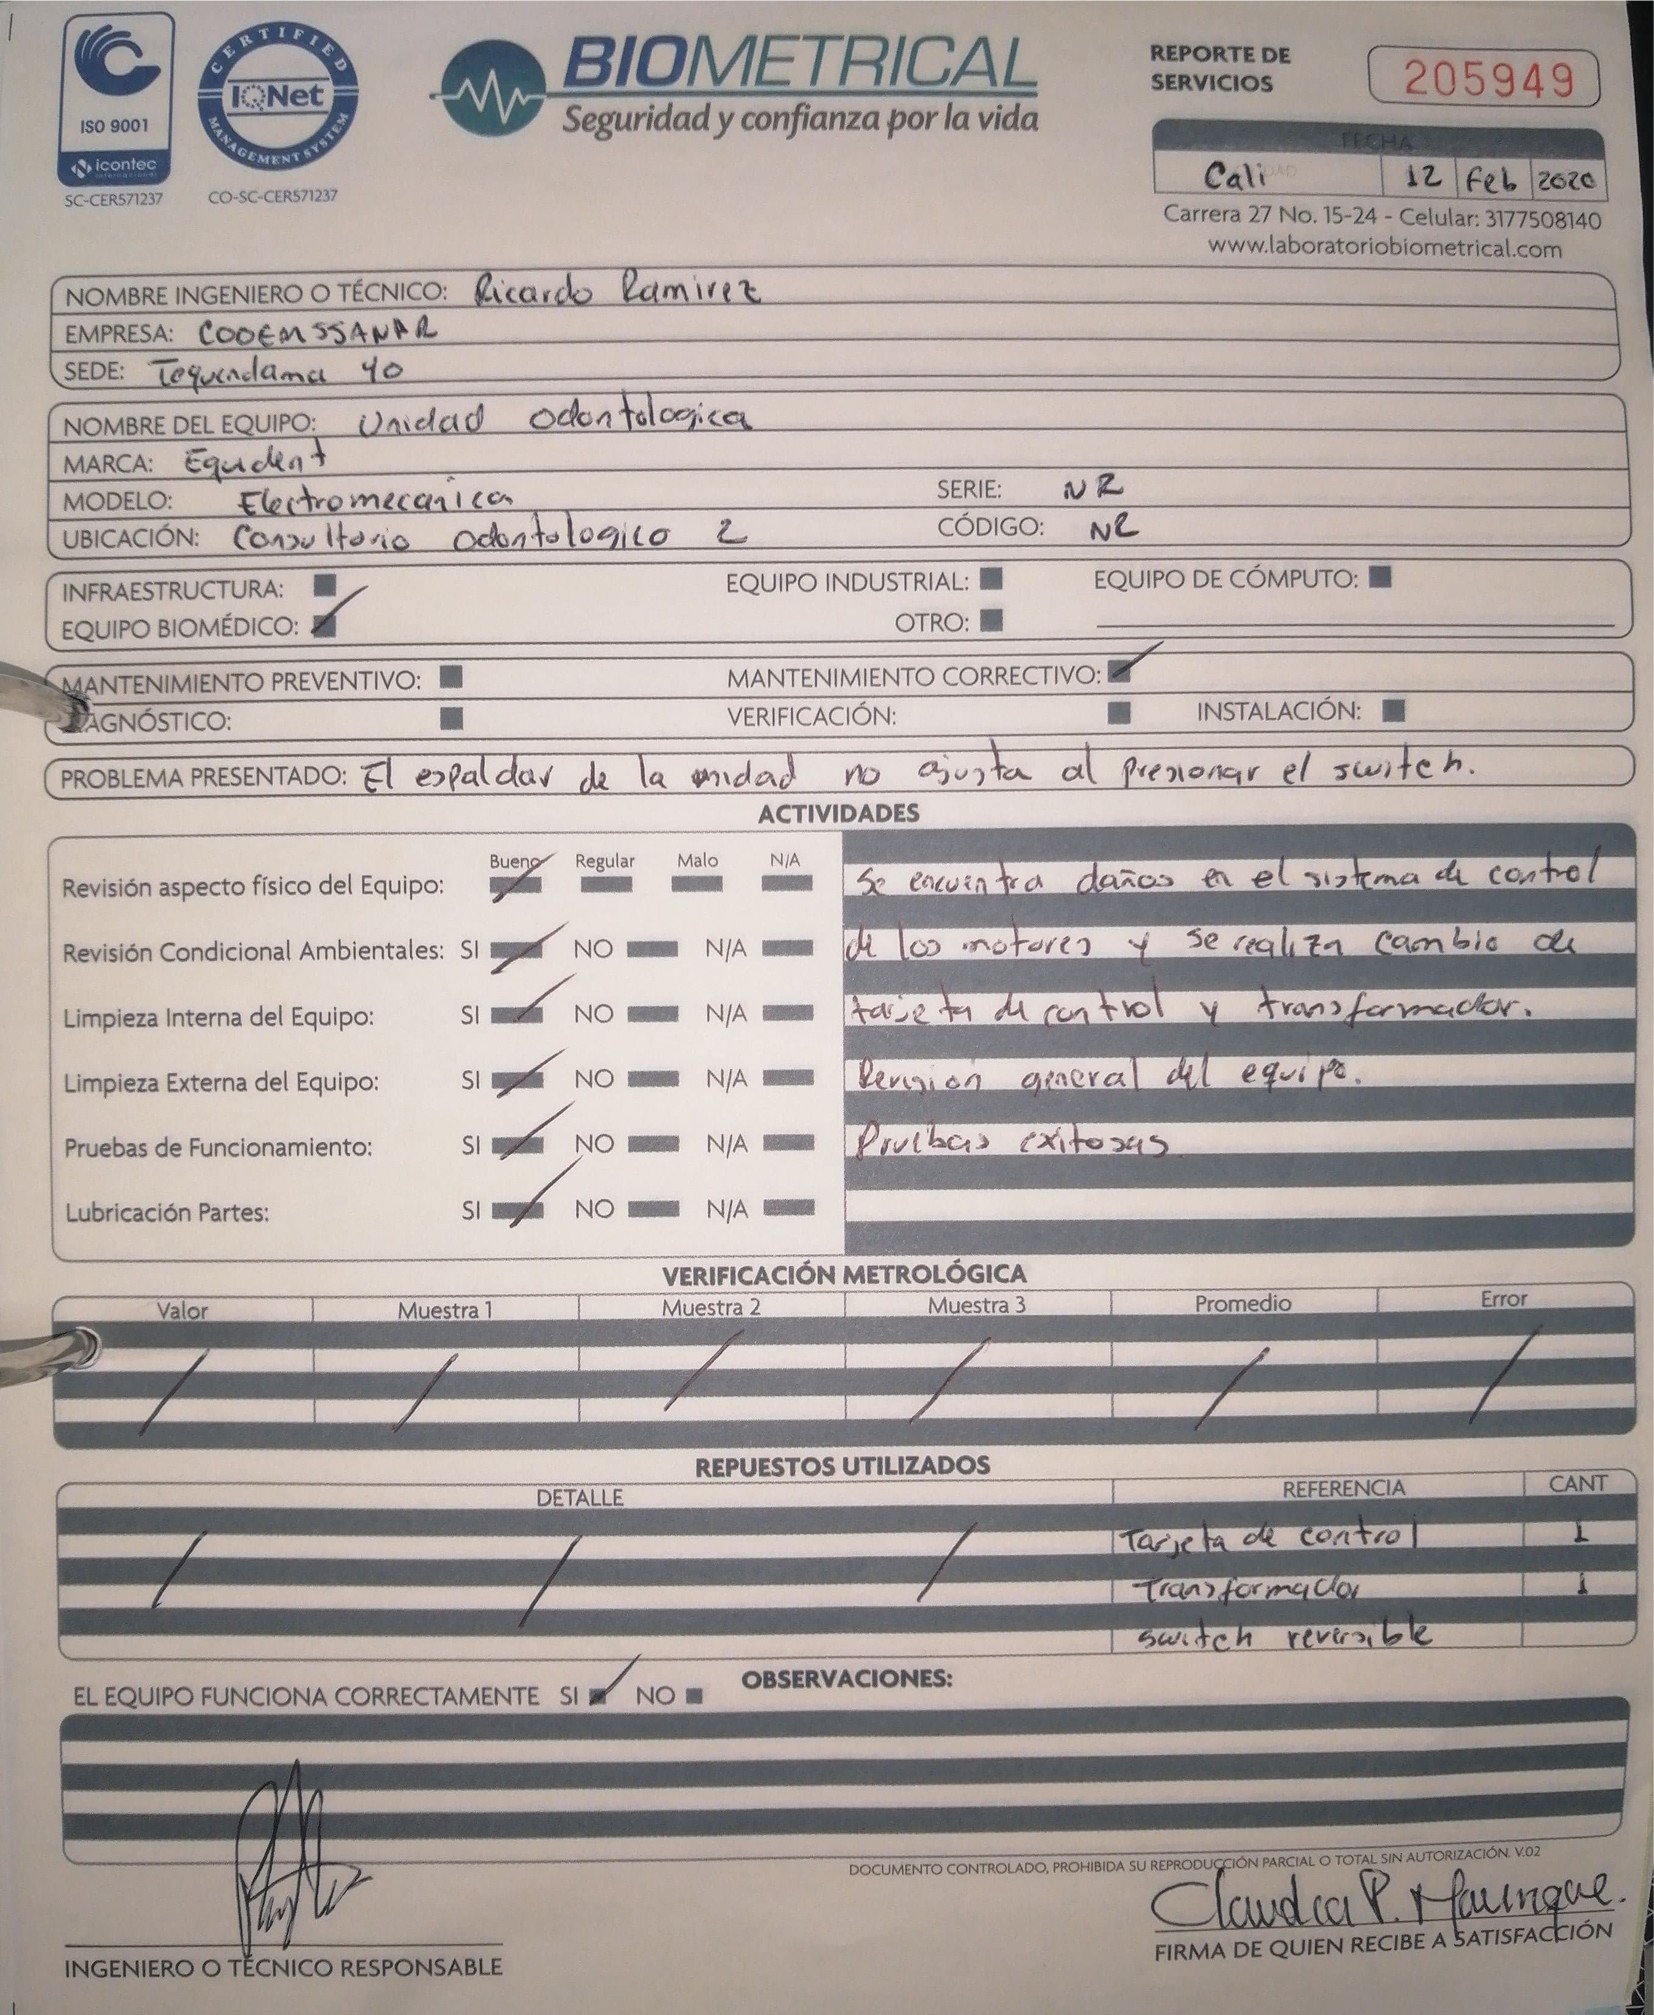 ISO 9001
icontec
internacional
SC-CER571237
CERTIFIED
IQNet
MANAGEMENT SYSTEM
CO-SC-CER571237
BIOMETRICAL
Seguridad y confianza por la vida
REPORTE DE
SERVICIOS
205949
FECHA
Cali 12 Feb 2020
Carrera 27 No. 15-24 - Celular: 3177508140
www.laboratoriobiometrical.com
NOMBRE INGENIERO O TÉCNICO: Ricardo Ramirez
EMPRESA: COOEMSSANAR
SEDE: Tequendama 40
NOMBRE DEL EQUIPO: Unidad odontologica
MARCA: Equident
MODELO: Electromecanica SERIE: NR
UBICACIÓN: Consultorio odontologico 2 CÓDIGO: NR
INFRAESTRUCTURA: EQUIPO INDUSTRIAL: EQUIPO DE CÓMPUTO:
EQUIPO BIOMÉDICO: OTRO:
MANTENIMIENTO PREVENTIVO: MANTENIMIENTO CORRECTIVO:
AGNÓSTICO: VERIFICACIÓN: INSTALACIÓN:
PROBLEMA PRESENTADO: El espaldar de la unidad no ajusta al presionar el switch.
ACTIVIDADES
Bueno Regular Malo N/A
Revisión aspecto físico del Equipo:
Se encuentra daños en el sistema de control
Revisión Condicional Ambientales: SI NO N/A
de los motores y se realiza cambio de
Limpieza Interna del Equipo: SI NO N/A
tarjeta de control y transformador.
Limpieza Externa del Equipo: SI NO N/A
Revision general del equipo.
Pruebas de Funcionamiento: SI NO N/A
Pruebas exitosas
Lubricación Partes: SI NO N/A
VERIFICACIÓN METROLÓGICA
Valor Muestra 1 Muestra 2 Muestra 3 Promedio Error
REPUESTOS UTILIZADOS
DETALLE REFERENCIA CANT
Tarjeta de control 1
Transformador 1
switch reversible
EL EQUIPO FUNCIONA CORRECTAMENTE SI NO OBSERVACIONES:
DOCUMENTO CONTROLADO, PROHIBIDA SU REPRODUCCIÓN PARCIAL O TOTAL SIN AUTORIZACIÓN. V.02
Claudia P. Manrique.
INGENIERO O TÉCNICO RESPONSABLE
FIRMA DE QUIEN RECIBE A SATISFACCIÓN